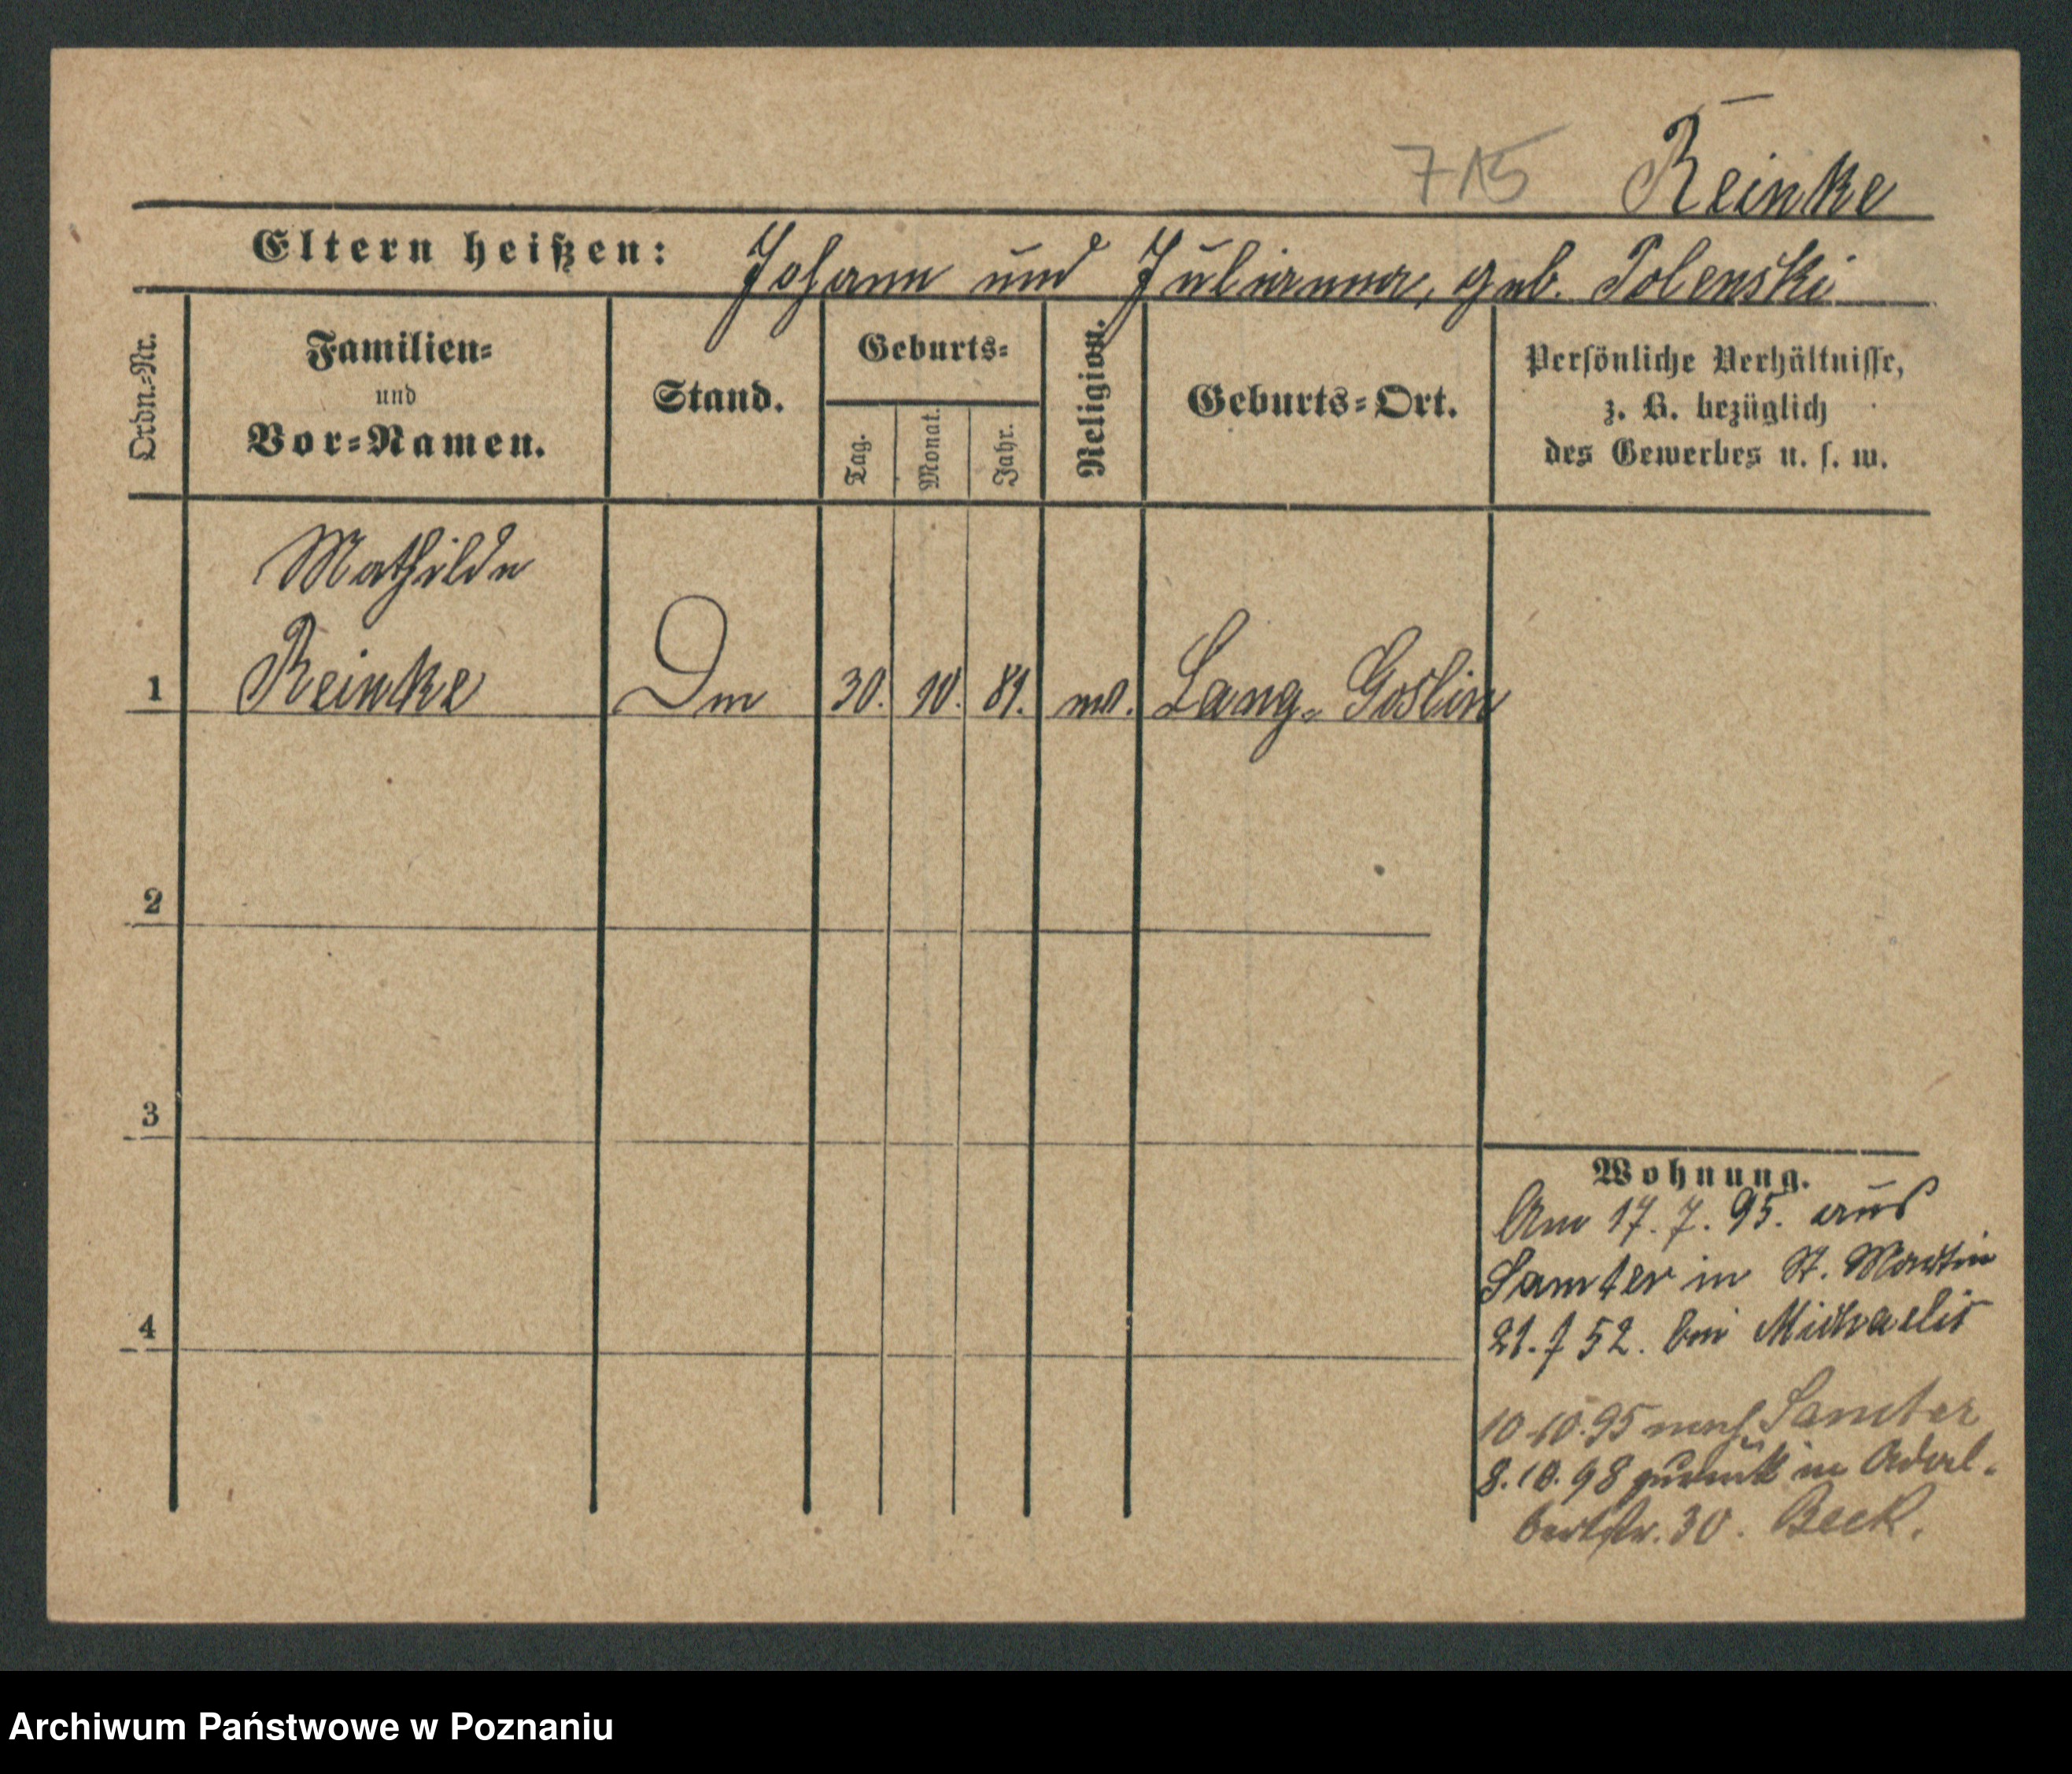 715 Reinke
Eltern heißen: Johann und Julianna, geb. Polenski
Ordn.-Nr.
Familien-
und
Vor-Namen.
Stand.
Geburts-
Tag.
Monat.
Jahr.
Religion.
Geburts-Ort.
Persönliche Verhältnisse,
z. B. bezüglich
des Gewerbes u. s. w.
Mathilde
1 Reinke Dm 30. 10. 81. Lang-Goslin
2
3
4
Wohnung.
Am 17. 7. 95. aus
Samter in St. Martin
21. / 52. bei Michaelis
10.10.95 nach Samter
8.10.98 zurück in Adal-
bertstr. 30. Beck.
Archiwum Państwowe w Poznaniu